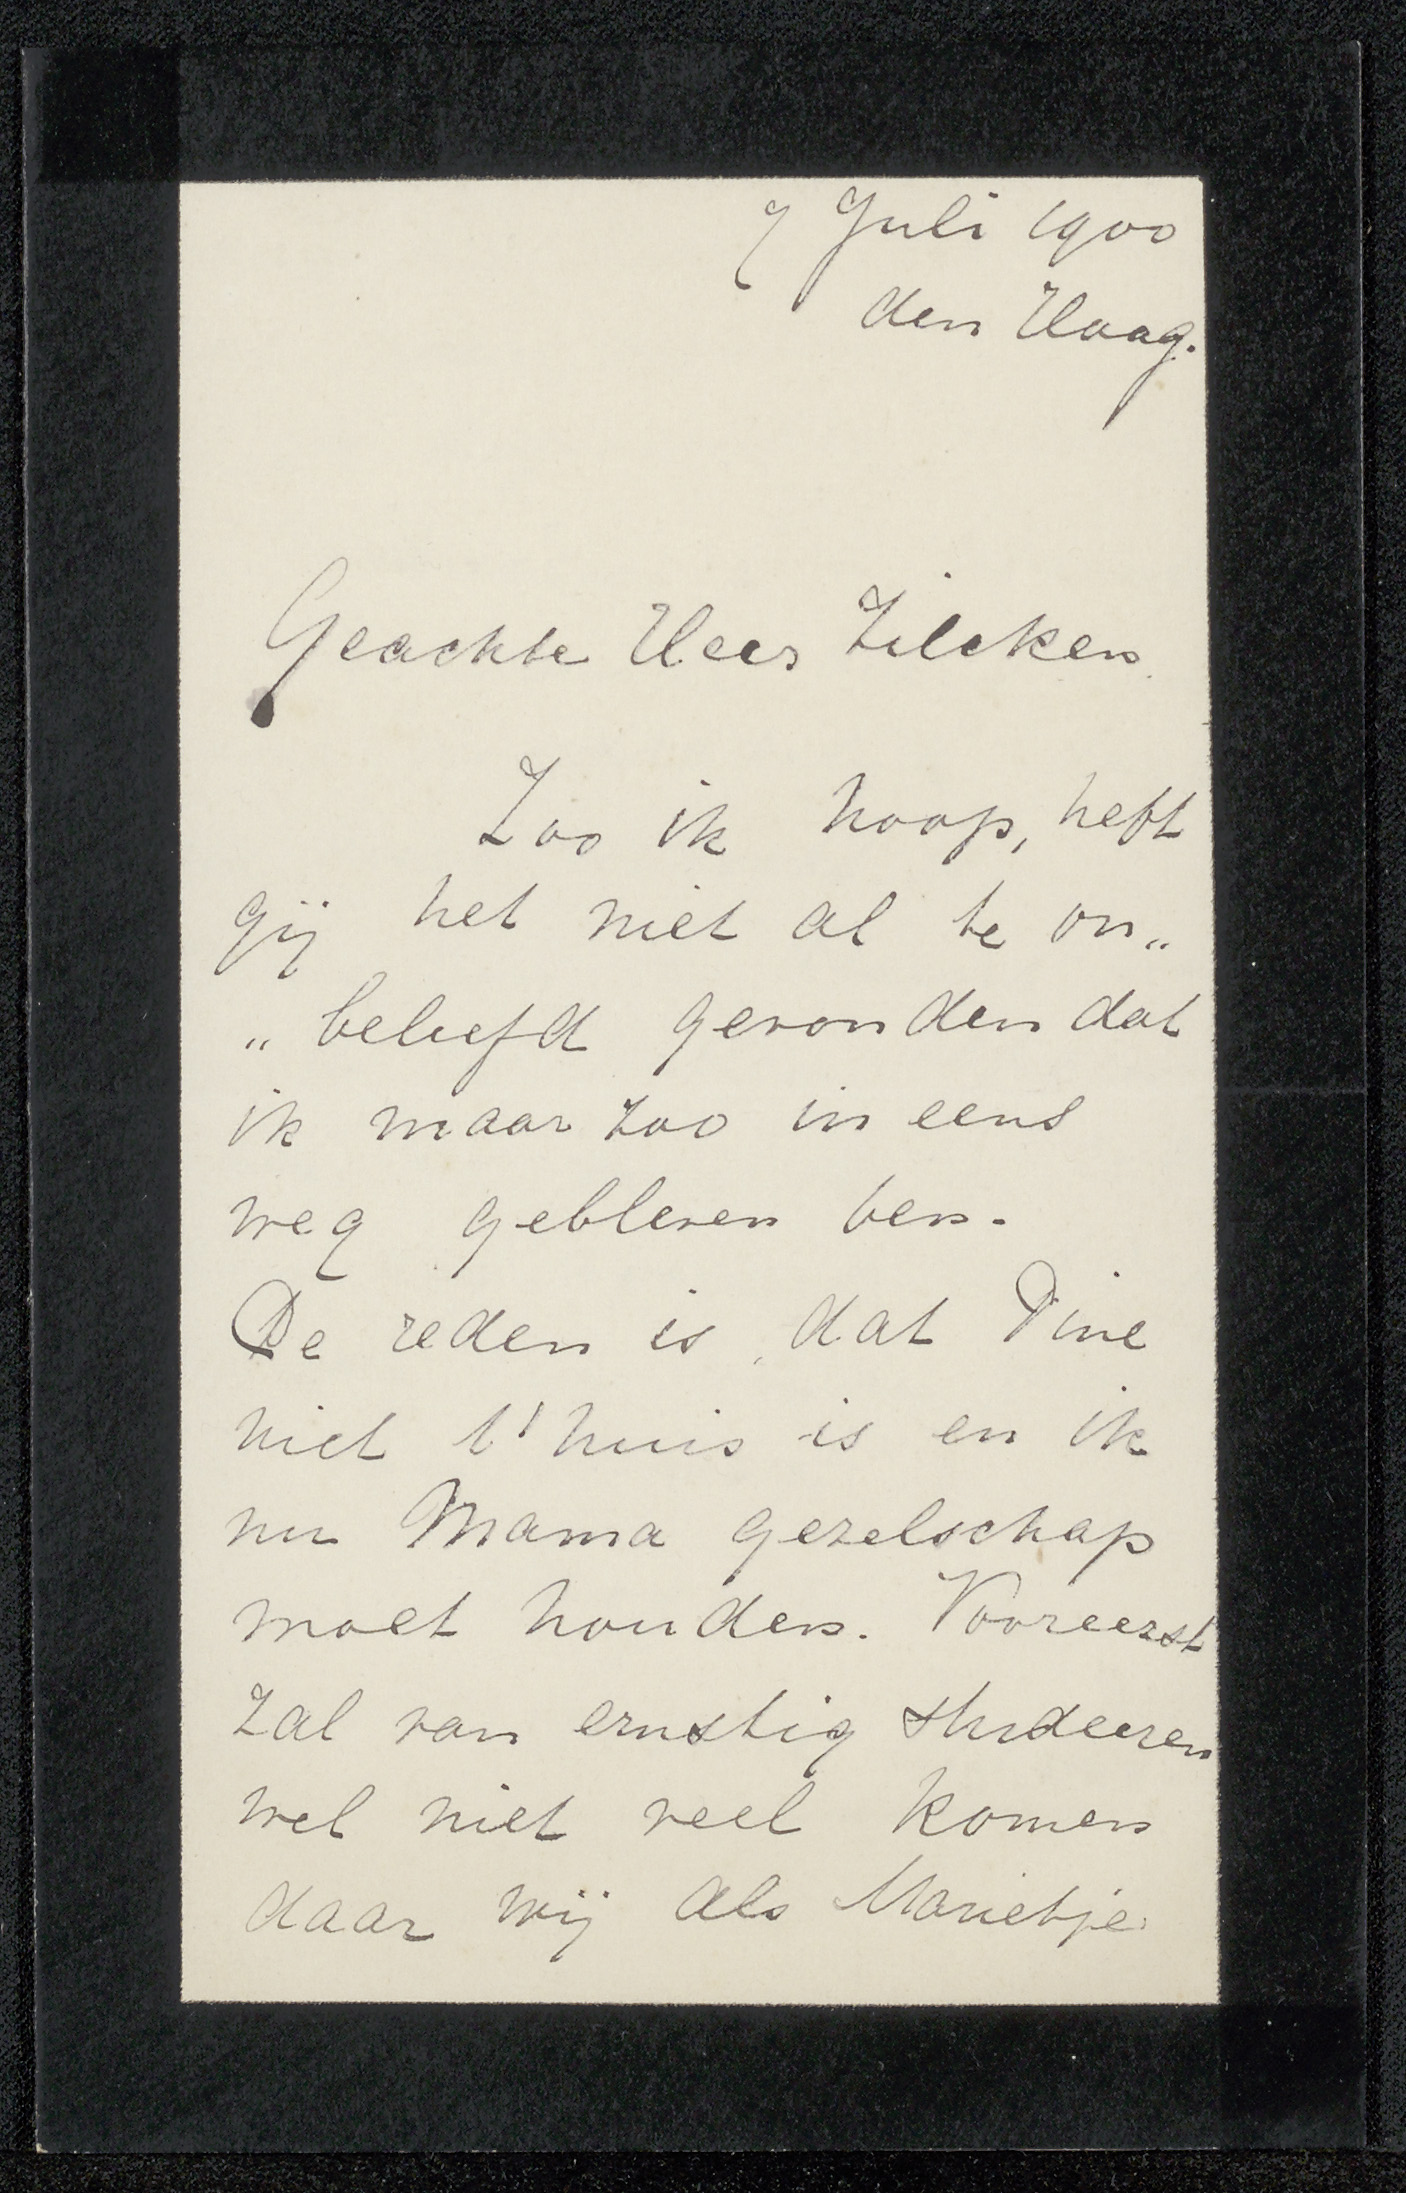 7 Juli 1900
den Haag.
Geachte Heer Zilcken
Zoo ik hoop, heft
gij het niet al te on„
„beleefd gevonden dat
ik maar zoo in eens
weg gebleven ben.
De reden is, dat Dine
niet t'huis is en ik
nu Mama gezelschap
moet houden. Vooreerst
zal van ernstig studeeren
wel niet veel komen
daar wij als Marietje